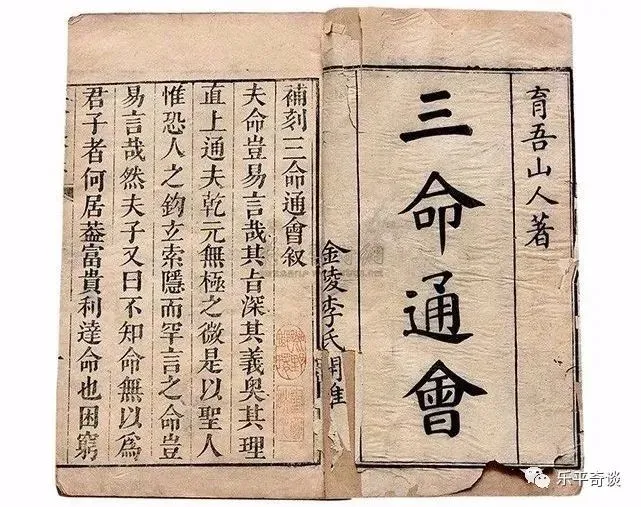 育吾山人著
三命通會
金陵李氏
補刻三命通會叙
夫命豈易言哉其㫖深其義奥其理
直上通夫乾元無極之微是以聖人
惟恐人之鈎玄索隱而罕言之命豈
易言哉然夫子又曰不知命無以為
君子者何居葢富貴利達命也困窮
乐平奇谈